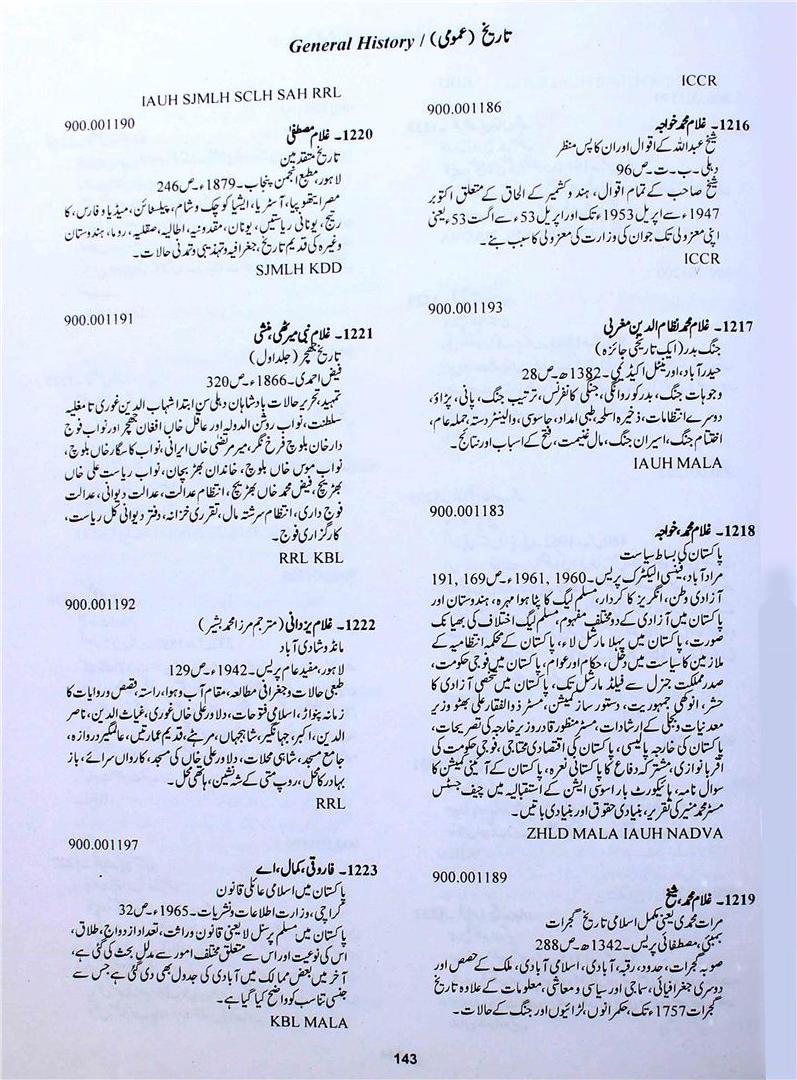 تاریخ (عمومی) / General History
ICCR
900.001186
1216۔ غلام محمد خواجہ
شیخ عبداللہ کے اقوال اور ان کا پس منظر
دہلی۔ ب۔ت۔ ص96
شیخ صاحب کے تمام اقوال، ہند و کشمیر کے الحاق کے متعلق اکتوبر
1947ء سے اپریل 1953ء تک اور اپریل 53ء سے اگست 53ء یعنی
اپنی معزولی تک جوان کی وزارت کی معزولی کا سبب بنے۔
ICCR
900.001193
1217۔ غلام محمد نظام الدین مغربی
جنگ بدر (ایک تاریخی جائزہ)
حیدرآباد، اورینٹل اکیڈیمی۔ 1382ھ۔ ص28
وجوہات جنگ، بدر کو روانگی، جنگی کانفرنس، ترتیب جنگ، پانی، پڑاؤ،
دوسرے انتظامات، ذخیرہ اسلحہ، طبی امداد، جاسوسی، والینٹر دستہ، حملہ عام،
اختتام جنگ، اسیران جنگ، مال غنیمت، فتح کے اسباب اور نتائج۔
IAUH MALA
900.001183
1218۔ غلام محمد، خواجہ
پاکستان کی بساط سیاست
مرادآباد، فینسی الیکٹرک پریس۔ 1960, 1961ء۔ ص169, 191
آزادی وطن، انگریز کا کردار، مسلم لیگ کا پٹا ہوا مہرہ، ہندوستان اور
پاکستان میں آزادی کے دو مختلف مفہوم، مسلم لیگ اختلاف کی بھیانک
صورت، پاکستان میں پہلا مارشل لاء، پاکستان کے محکمہ انتظامیہ کے
ملازمین کا سیاست میں دخل، حکام اور عوام، پاکستان میں فوجی حکومت،
صدر مملکت جنرل سے فیلڈ مارشل تک، پاکستان میں شخصی آزادی کا
حشر، انوکھی جمہوریت، دستور ساز کمیشن، مسٹر ذوالفقار علی بھٹو وزیر
معدنیات و بجلی کے ارشادات، مسٹر منظور قادر وزیر خارجہ کی تصریحات،
پاکستان کی خارجہ پالیسی، پاکستان کی اقتصادی محتاجی، فوجی حکومت کی
اقربا نوازی، مشترکہ دفاع کا پاکستانی نعرہ، پاکستان کے آئینی کمیشن کا
سوال نامہ، ہائیکورٹ بار اسوسی ایشن کے استقبالیہ میں چیف جسٹس
مسٹر محمد منیر کی تقریر، بنیادی حقوق اور بنیادی باتیں۔
ZHLD MALA IAUH NADVA
900.001189
1219۔ غلام محمد، شیخ
مرات محمدی یعنی مکمل اسلامی تاریخ گجرات
بمبئی، مصطفائی پریس۔ 1342ھ۔ ص288
صوبہ گجرات، حدود، رقبہ، آبادی، اسلامی آبادی، ملک کے حصص اور
دوسری جغرافیائی، سماجی اور سیاسی و معاشی، معلومات کے علاوہ تاریخ
گجرات 1757ء تک، حکمرانوں، لڑائیوں اور جنگ کے حالات۔
IAUH SJMLH SCLH SAH RRL
900.001190
1220۔ غلام مصطفیٰ
تاریخ متقدمین
لاہور، مطبع انجمن پنجاب۔ 1879ء۔ ص246
مصر، ایتھوپیا، آسٹریا، ایشیا کوچک و شام، پیلسٹائن، میڈیا و فارس، کا
رتیج، یونانی ریاستیں، یونان، مقدونیہ، اطالیہ، صقلیہ، روما، ہندوستان
وغیرہ کی قدیم تاریخ، جغرافیہ و تہذیبی و تمدنی حالات۔
SJMLH KDD
900.001191
1221۔ غلام نبی میرٹھی، منشی
تاریخ جھجر (جلد اول)
فیض احمدی۔ 1866ء۔ ص320
تمہید، تحریر حالات پادشاہان دہلی سن ابتدا شہاب الدین غوری تا مغلیہ
سلطنت، نواب روشن الدولہ اور عاقل خاں افغان جھجر اور نواب فوج
دار خان بلوچ فرخ نگر، میر مرتضیٰ خاں ایرانی، نواب کامگار خاں بلوچ،
نواب موسی خاں بلوچ، خاندان بھڑیچان، نواب ریاست علی خاں
بھڑیچ، فیض محمد خاں بھڑیچ، انتظام عدالت، عدالت دیوانی، عدالت
فوج داری، انتظام سرشتہ مال، تقرری خزانہ، دفتر دیوانی کل ریاست،
کارگزاری فوج۔
RRL KBL
900.001192
1222۔ غلام یزدانی (مترجم مرزا محمد بشیر)
مانڈو شادی آباد
لاہور، مفید عام پریس۔ 1942ء۔ ص129
طبعی حالات و جغرافی مطالعہ، مقام آب و ہوا، راستہ، قصص و روایات کا
زمانہ پنواڑ، اسلامی فتوحات، دلاور علی خاں غوری، غیاث الدین، ناصر
الدین، اکبر، جہانگیر، شاہجہاں، مرہٹے، قدیم عمارتیں، عالمگیر دروازہ،
جامع مسجد، شاہی محلات، دلاور علی خاں کی مسجد، کارواں سرائے، باز
بہادر کا محل، روپ متی کے شہ نشین، ہاتھی محل۔
RRL
900.001197
1223۔ فاروقی، کمال، اے
پاکستان میں اسلامی عائلی قانون
کراچی، وزارت اطلاعات و نشریات۔ 1965ء۔ ص32
پاکستان میں مسلم پرسنل لا یعنی قانون وراثت، تعداد ازدواج، طلاق،
اس کی نوعیت اور اس سے متعلق مختلف امور سے مدلل بحث کی گئی ہے،
آخر میں بعض ممالک میں آبادی کی جدول بھی دی گئی ہے جس سے
جنسی تناسب کو واضح کیا گیا ہے۔
KBL MALA
143